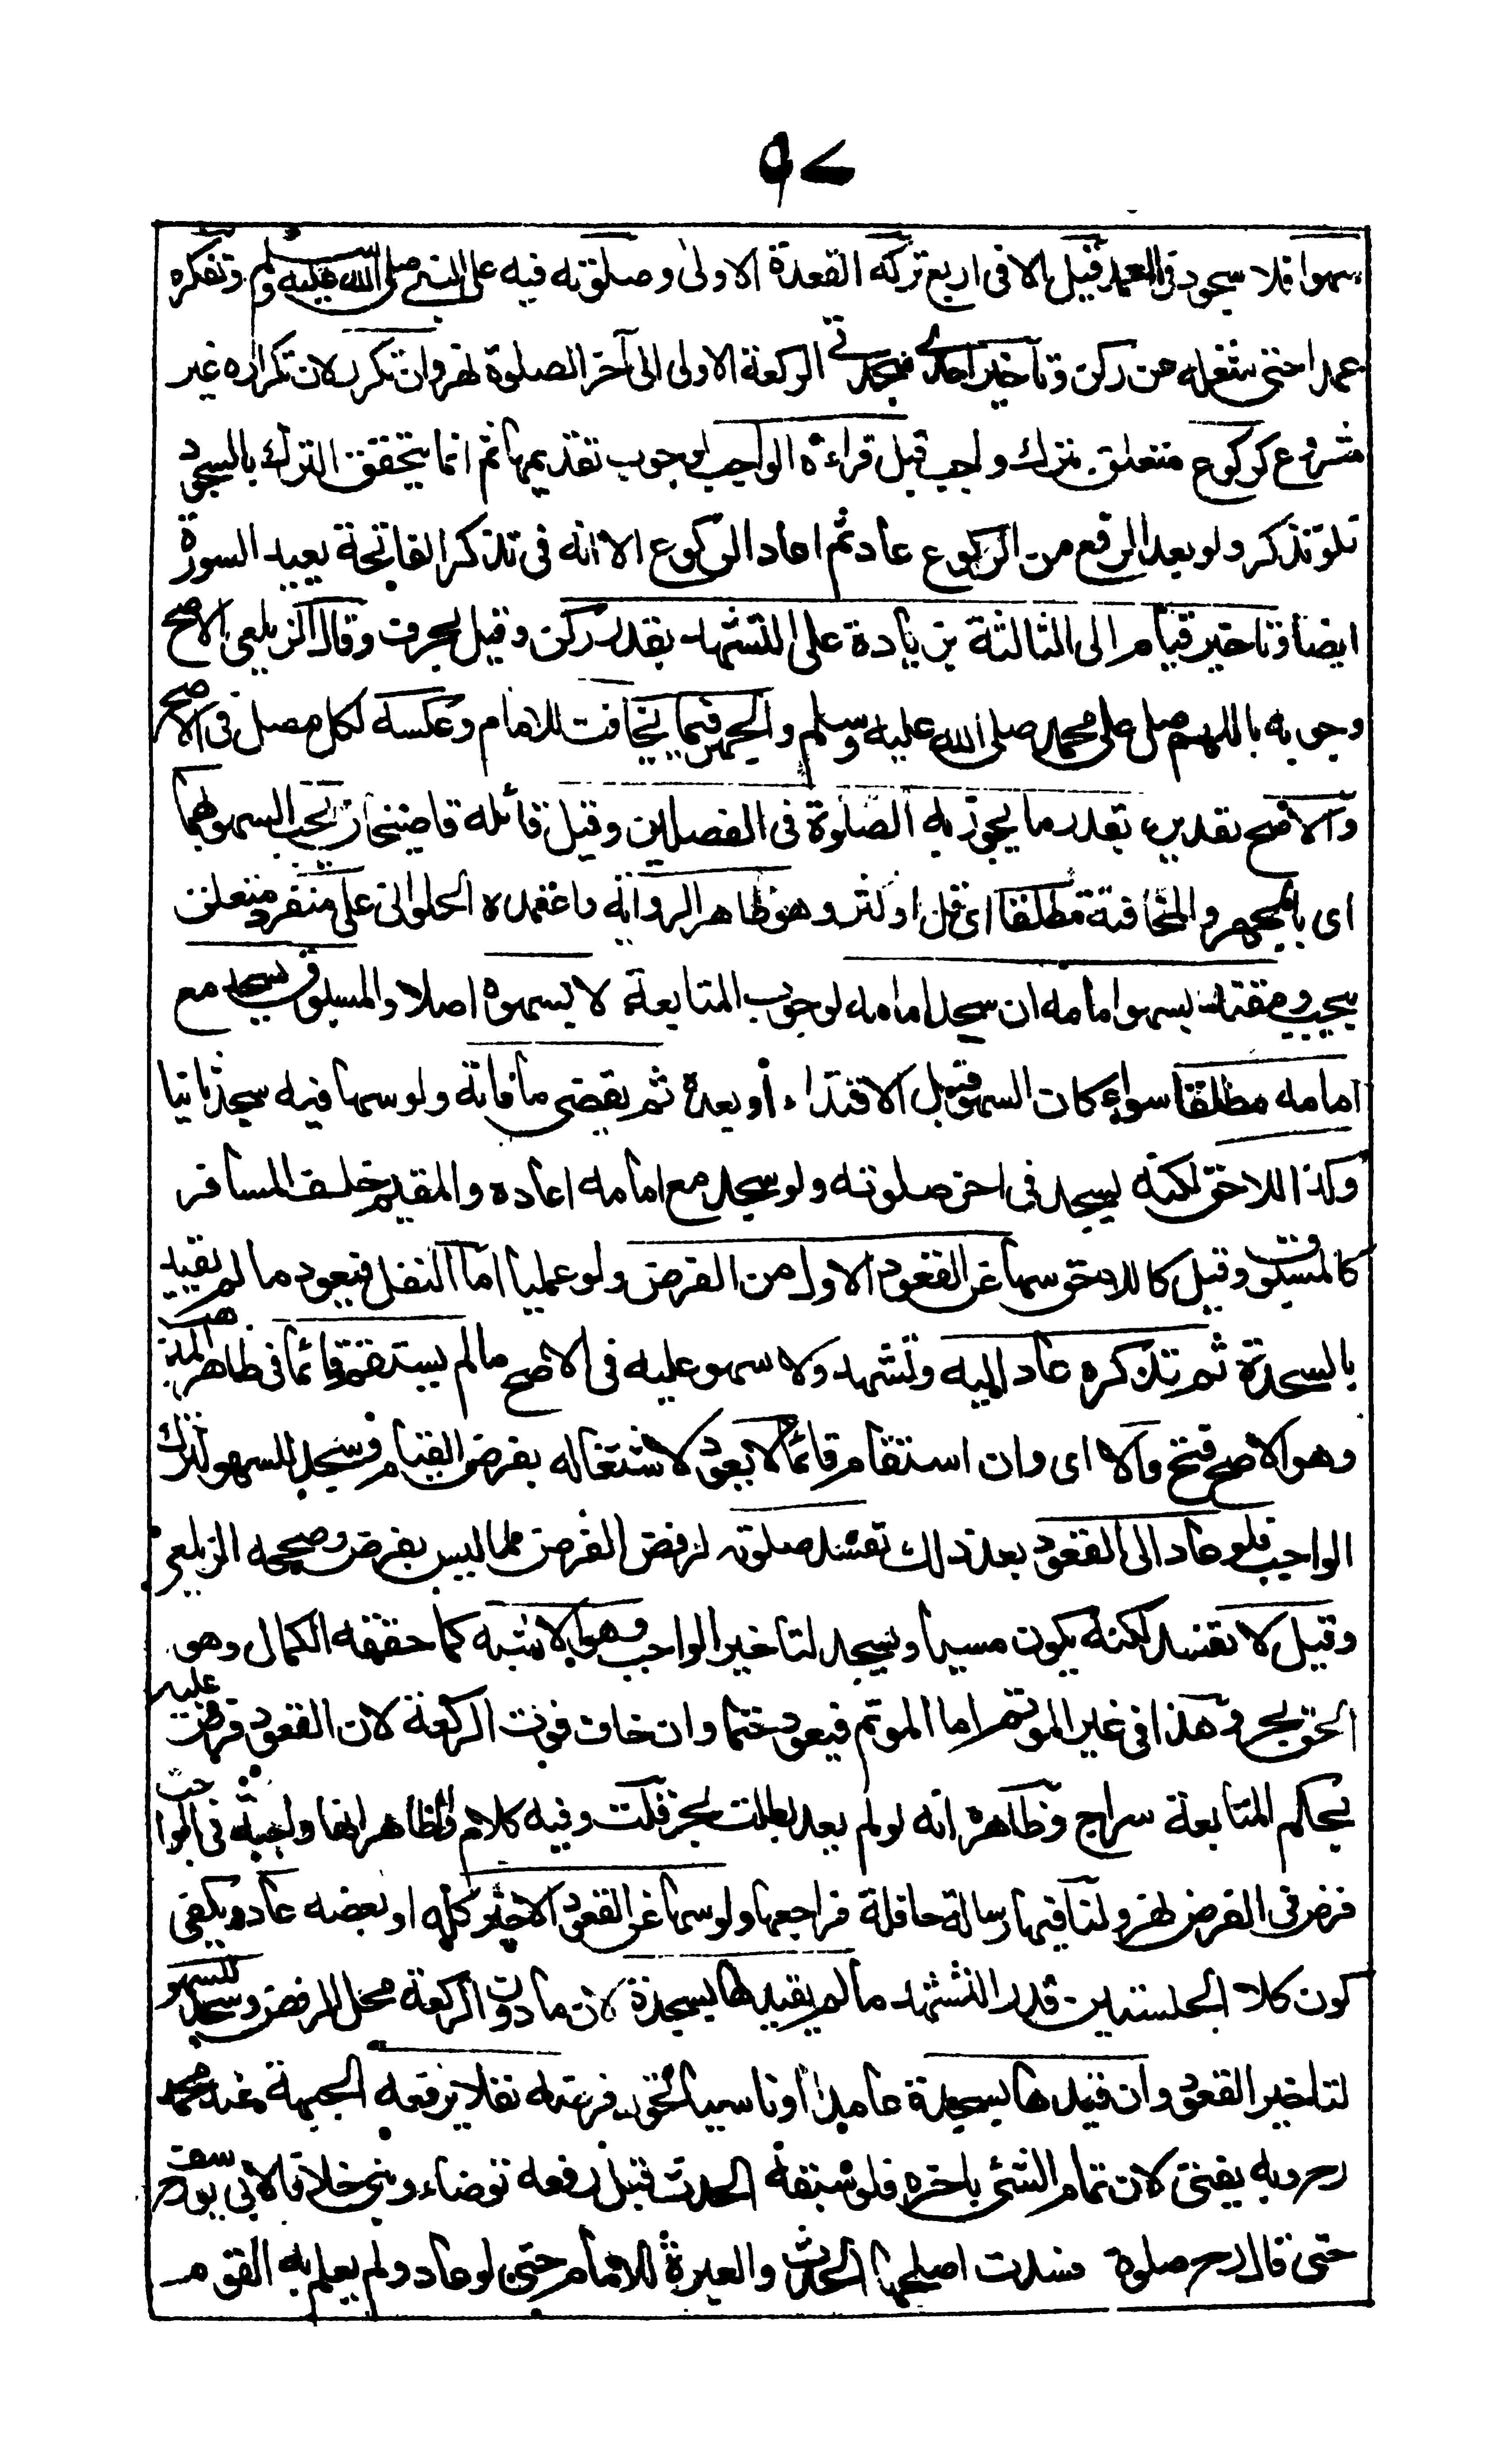 ٩٧
سهوا فلا سجود فى العمد قيل الا فى اربع تركه القعدة الاولى وصلوته فيه على النبي صلى الله عليه وسلم وتفكره
عمدا حتى شغله عن ركن وتأخير احدى سجدتى الركعة الاولى الى آخر الصلوة نهر وان تكرر لان تكراره غير
مشروع كركوع متعلق بترك واجب قبل قراءة الواجب لوجوب تقديمها ثم انما يتحقق الترك بالسجود
فلو تذكر ولو بعد الرفع من الركوع عاد ثم اعاد الركوع الا انه فى تذكر الفاتحة يعيد السورة
ايضا وتاخير قيام الى الثالثة بزيادة على التشهد بقدر ركن وقيل بحرف وقال الزيلعى الاصح
وجوبه باللهم صل على محمد صلى الله عليه وسلم والجهر فيما يخافت للامام وعكسه لكل مصل فى الاصح
والاصح تقديره بقدر ما يجوز به الصلوة فى الفصلين وقيل قائله قاضيخان يجب السهو بهما
اى بالجهر والمخافتة مطلقا اى قل او كثر وهو ظاهر الرواية واعتمده الحلوانى على منفرد متعلق
بيجب ومقتد بسهو امامه ان سجد امامه لوجوب المتابعة لا بسهوه اصلا والمسبوق يسجد مع
امامه مطلقا سواء كان السهو قبل الاقتداء أو بعده ثم يقضى ما فاته ولو سها فيه سجد ثانيا
وكذا اللاحق لكنه يسجد فى اخر صلوته ولو سجد مع امامه اعاده والمقيم خلف المسافر
كالمسبوق وقيل كاللاحق سها عن القعود الاول من الفرض ولو عمليا اما النفل فيعود ما لم يقيد
بالسجدة ثم تذكره عاد اليه وتشهد ولا سهو عليه فى الاصح ما لم يستقم قائما فى ظاهر المذهب
وهو الاصح فتح والا اى وان استقام قائما لا يعود لاشتغاله بفرض القيام وسجد للسهو لترك
الواجب فلو عاد الى القعود بعد ذلك تفسد صلوته لرفض الفرض لما ليس بفرض وصححه الزيلعى
وقيل لا تفسد لكنه يكون مسيأ ويسجد لتاخير الواجب وهو الاشبه كما حققه الكمال وهو
الحق بحر وهذا فى غير الموتم اما الموتم فيعود حتما وان خاف فوت الركعة لان القعود فرض عليه
بحكم المتابعة سراج وظاهره انه لو لم يعد بطلت بحر قلت وفيه كلام والظاهر انها واجبة فى الواجب
فرض فى الفرض نهر ولنا فيها رسالة حافلة فراجعها ولو سها عن القعود الاخير كله او بعضه عاد ويكفى
كون كلا الجلستين قدر التشهد ما لم يقيدها بسجدة لان ما دون الركعة محل الرفض وسجد للسهو
لتاخير القعود وان قيدها بسجدة عامدا أو ناسيا تحول فرضه نفلا برفعه الجبهة عند محمد
رحـ وبه يفتى لان تمام الشئ باخره فلو سبقه الحدث قبل رفعه توضاء وبنى خلافا لابى يوسف رحـ
حتى قال رحـ صلوة فسدت اصلحها الحدث والعبرة للامام حتى لو عاد ولم يعلم به القوم